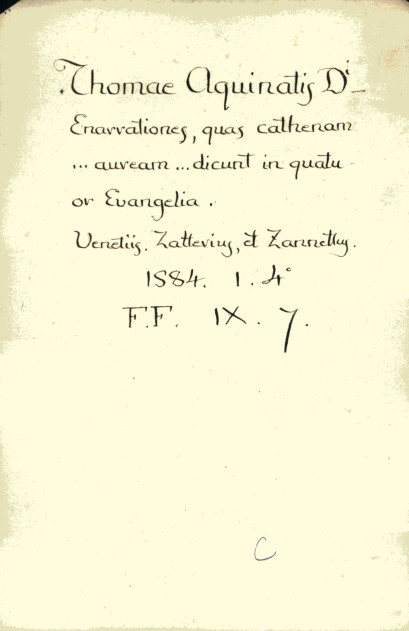 Thomae Aquinatis Di_
Enarrationes, quas cathenam
... auream ... dicunt in quatu
or Evangelia .
Venetiis. Zatterius, et Zannettus.
1584. 1. 4°
F.F. IX. 7.
C